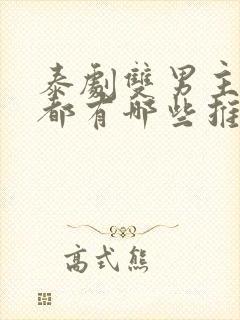 泰劇雙男主
都有哪些推
高式熊